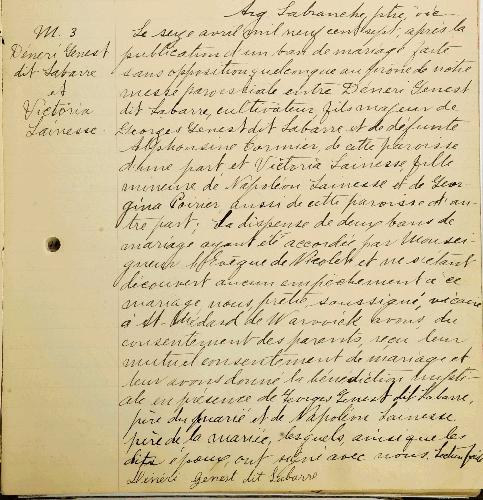 Arg Labranche, ptre, vic
M. 3
Déneri Genest
dit Labarre
et
Victoria
Lainesse.
Le seize avril mil neuf cent sept, après la
publication d'un ban de mariage faite
sans opposition quelconque au prône de notre
messe paroissiale entre Déneri Genest
dit Labarre, cultivateur, fils majeur de
Georges Genest dit Labarre et de défunte
Alphonsine Cormier, de cette paroisse
d'une part, et Victoria Lainesse, fille
mineure de Napoléon Lainesse et de Geor-
gina Poirier aussi de cette paroisse d'au-
tre part; la dispense de deux bans de
mariage ayant été accordée par Monsei-
gneur l'Evêque de Nicolet et ne s'étant
découvert aucun empêchement à ce
mariage nous, prêtre soussigné, vicaire
à St-Médard de Warwick avons du
consentement des parents, reçu leur
mutuel consentement de mariage et
leur avons donné la bénédiction nupti-
ale en présence de Georges Genest dit Labarre,
père du marié et de Napoléon Lainesse
père de la mariée, lesquels, ainsi que les
dits époux, ont signé avec nous. Lecture faite
Dénéri Genest dit Labarre